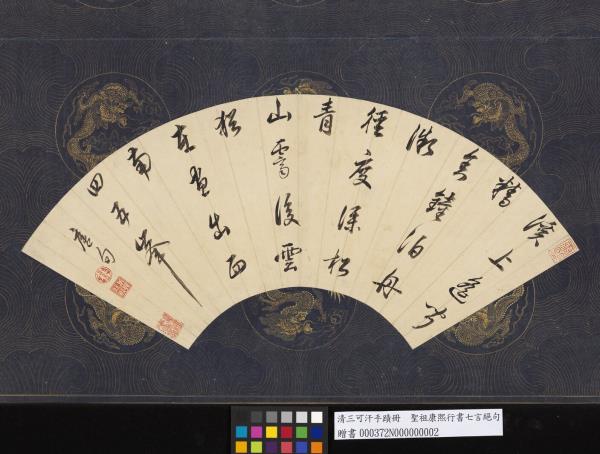 溪上遙聞
精
舍鐘泊舟
微
徑度深松
青
山霽後雲
猶
在畫出西
南
四五峯
唐句
清三可汗手蹟冊　聖祖康熙行書七言絕句
贈書 000372N000000002